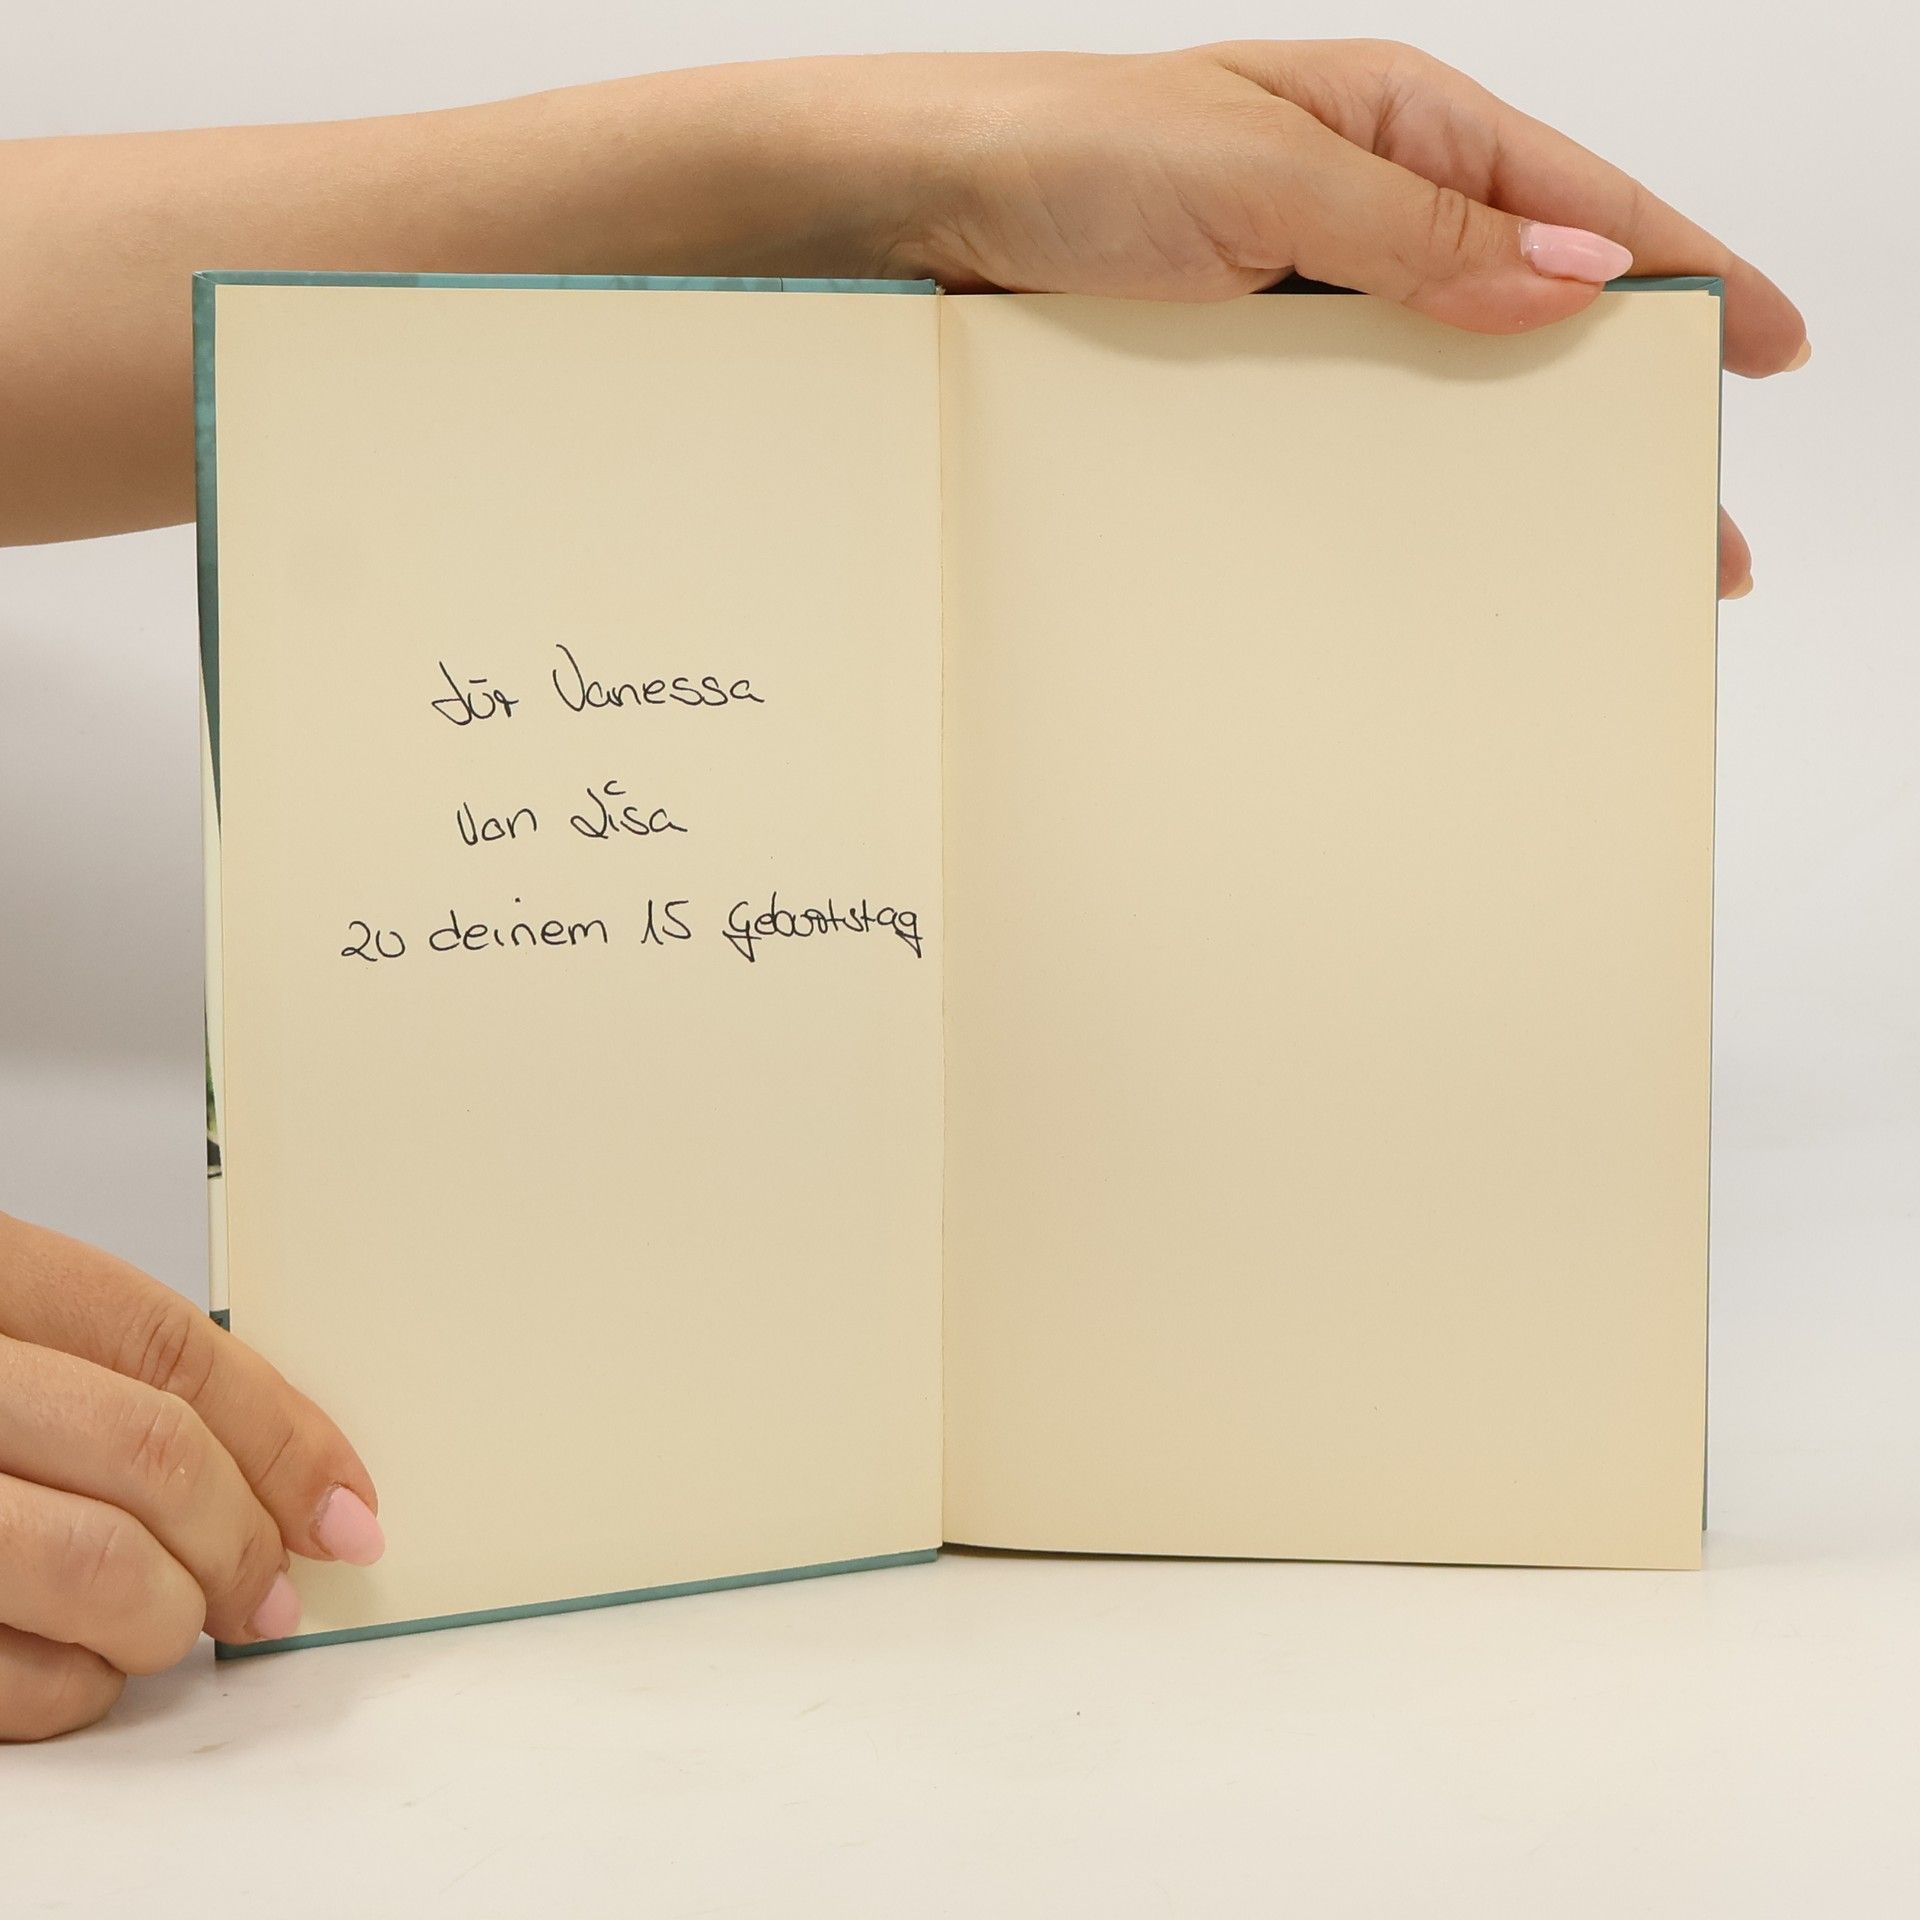 für Vanessa
von Lisa
zu deinem 15 Geburtstag